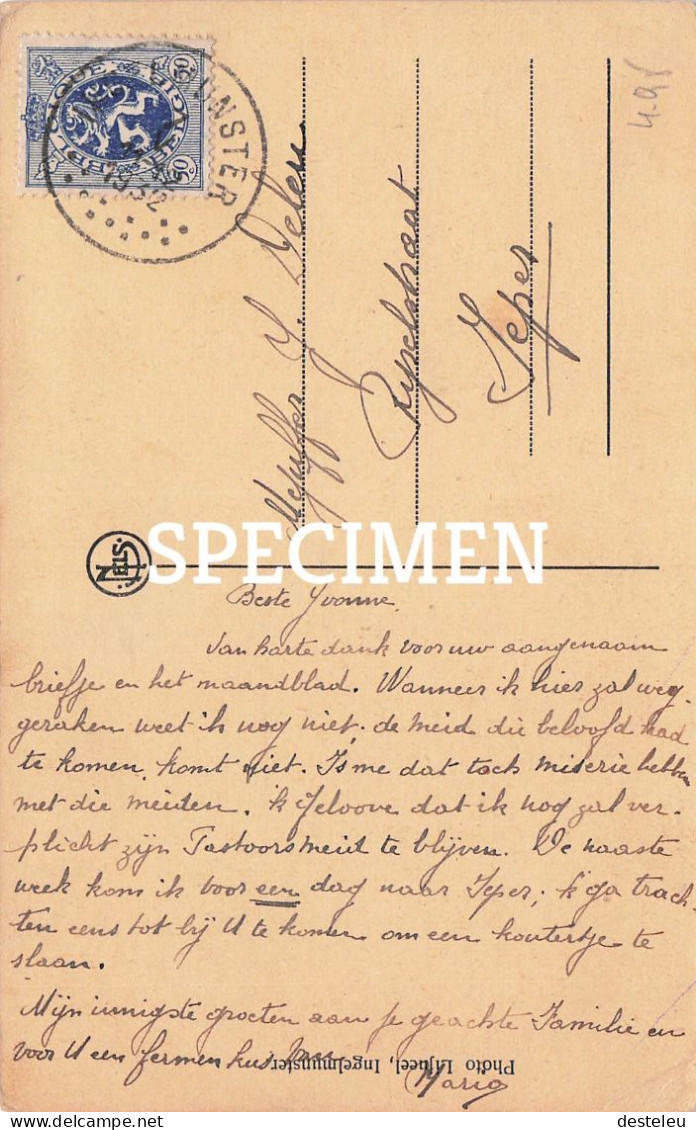 UNSTER
1932
BELGIQUE
BELGIË
50c
50c
4.98
Mejuffer Y. Delen
Rijselstraat
Ieper
SPECIMEN
NELS
Beste Yvonne,
Van harte dank voor uw aangenaam
briefje en het maandblad. Wanneer ik hier zal weg-
geraken weet ik nog niet. de meid die beloofd had
te komen, komt niet. Is me dat toch miserie hebben
met die meiden. ik geloove dat ik nog zal ver-
plicht zijn Pastoorsmeid te blijven. De naaste
week kom ik voor een dag naar Ieper; 'k ga trach-
ten eens tot bij U te komen om een koutertje te
slaan.
Mijn innigste groeten aan je geachte Familie en
voor U een fermen kus van
Maria
Photo Lijneel, Ingelmunster
delcampe.net
desteleu